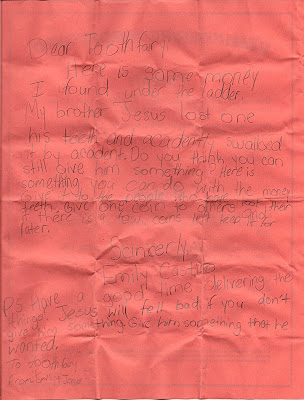 Dear Toothfairy
Here is some money
I found under the ladder.
My brother Jesus lost one
his teeth and acadently swallowed
it by acadent. Do you think you can
still give him something? Here is
something you can do with the money
teeth give one coin to others lost their
if there is a few coins left keep it for
later.
Scincerly
Emily Castro
P.S Have a good time delivering the
things! Jesus will fell bad if you don't
give him something. Give him something that he
wanted.
To toothfairy
From Emily Jesus